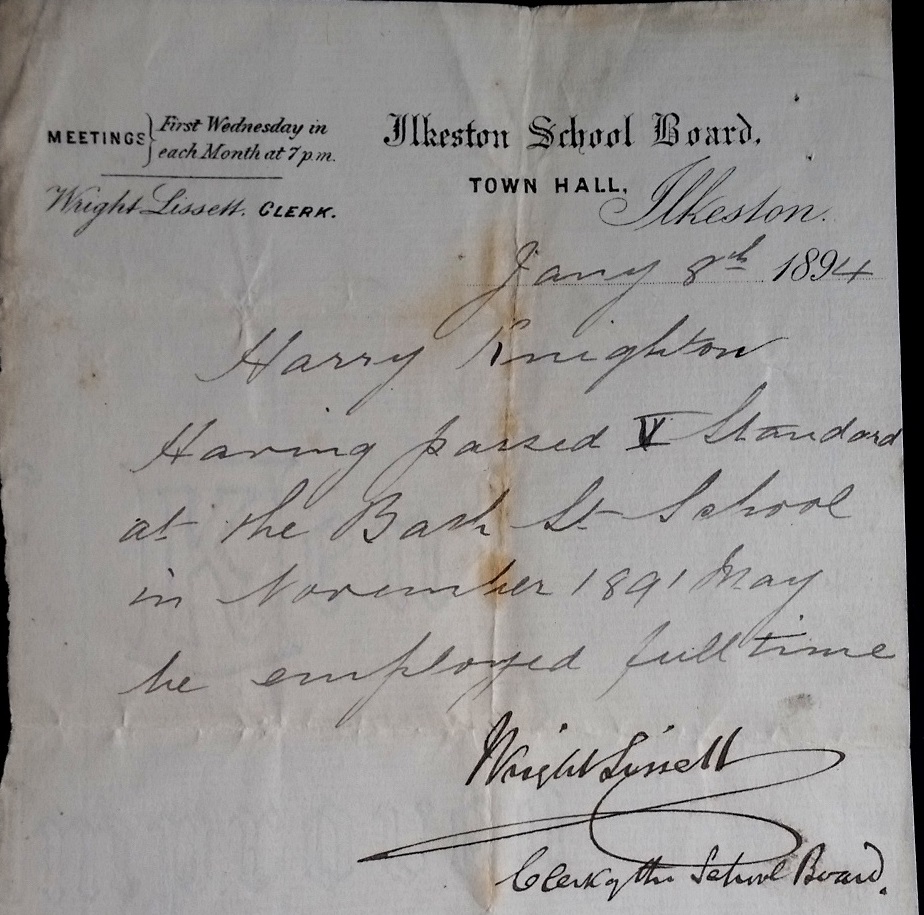 MEETINGS } First Wednesday in
each Month at 7 p.m.
Wright Lissett. CLERK.
Ilkeston School Board.
TOWN HALL,
Ilkeston.
Jany 8th 1894
Harry Knighton
Having passed V Standard
at the Bath St School
in November 1891 May
be employed full time
Wright Lissett
Clerk of the School Board.